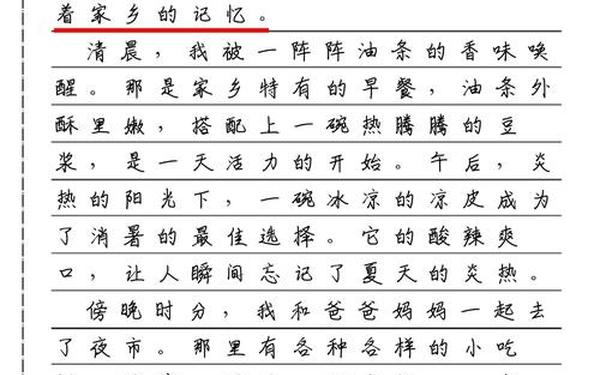 着家乡的记忆。
清晨，我被一阵阵油条的香味唤
醒。那是家乡特有的早餐，油条外
酥里嫩，搭配上一碗热腾腾的豆
浆，是一天活力的开始。午后，炎
热的阳光下，一碗冰凉的凉皮成为
了消暑的最佳选择。它的酸辣爽
口，让人瞬间忘记了夏天的炎热。
傍晚时分，我和爸爸妈妈一起去
了夜市。那里有各种各样的小吃